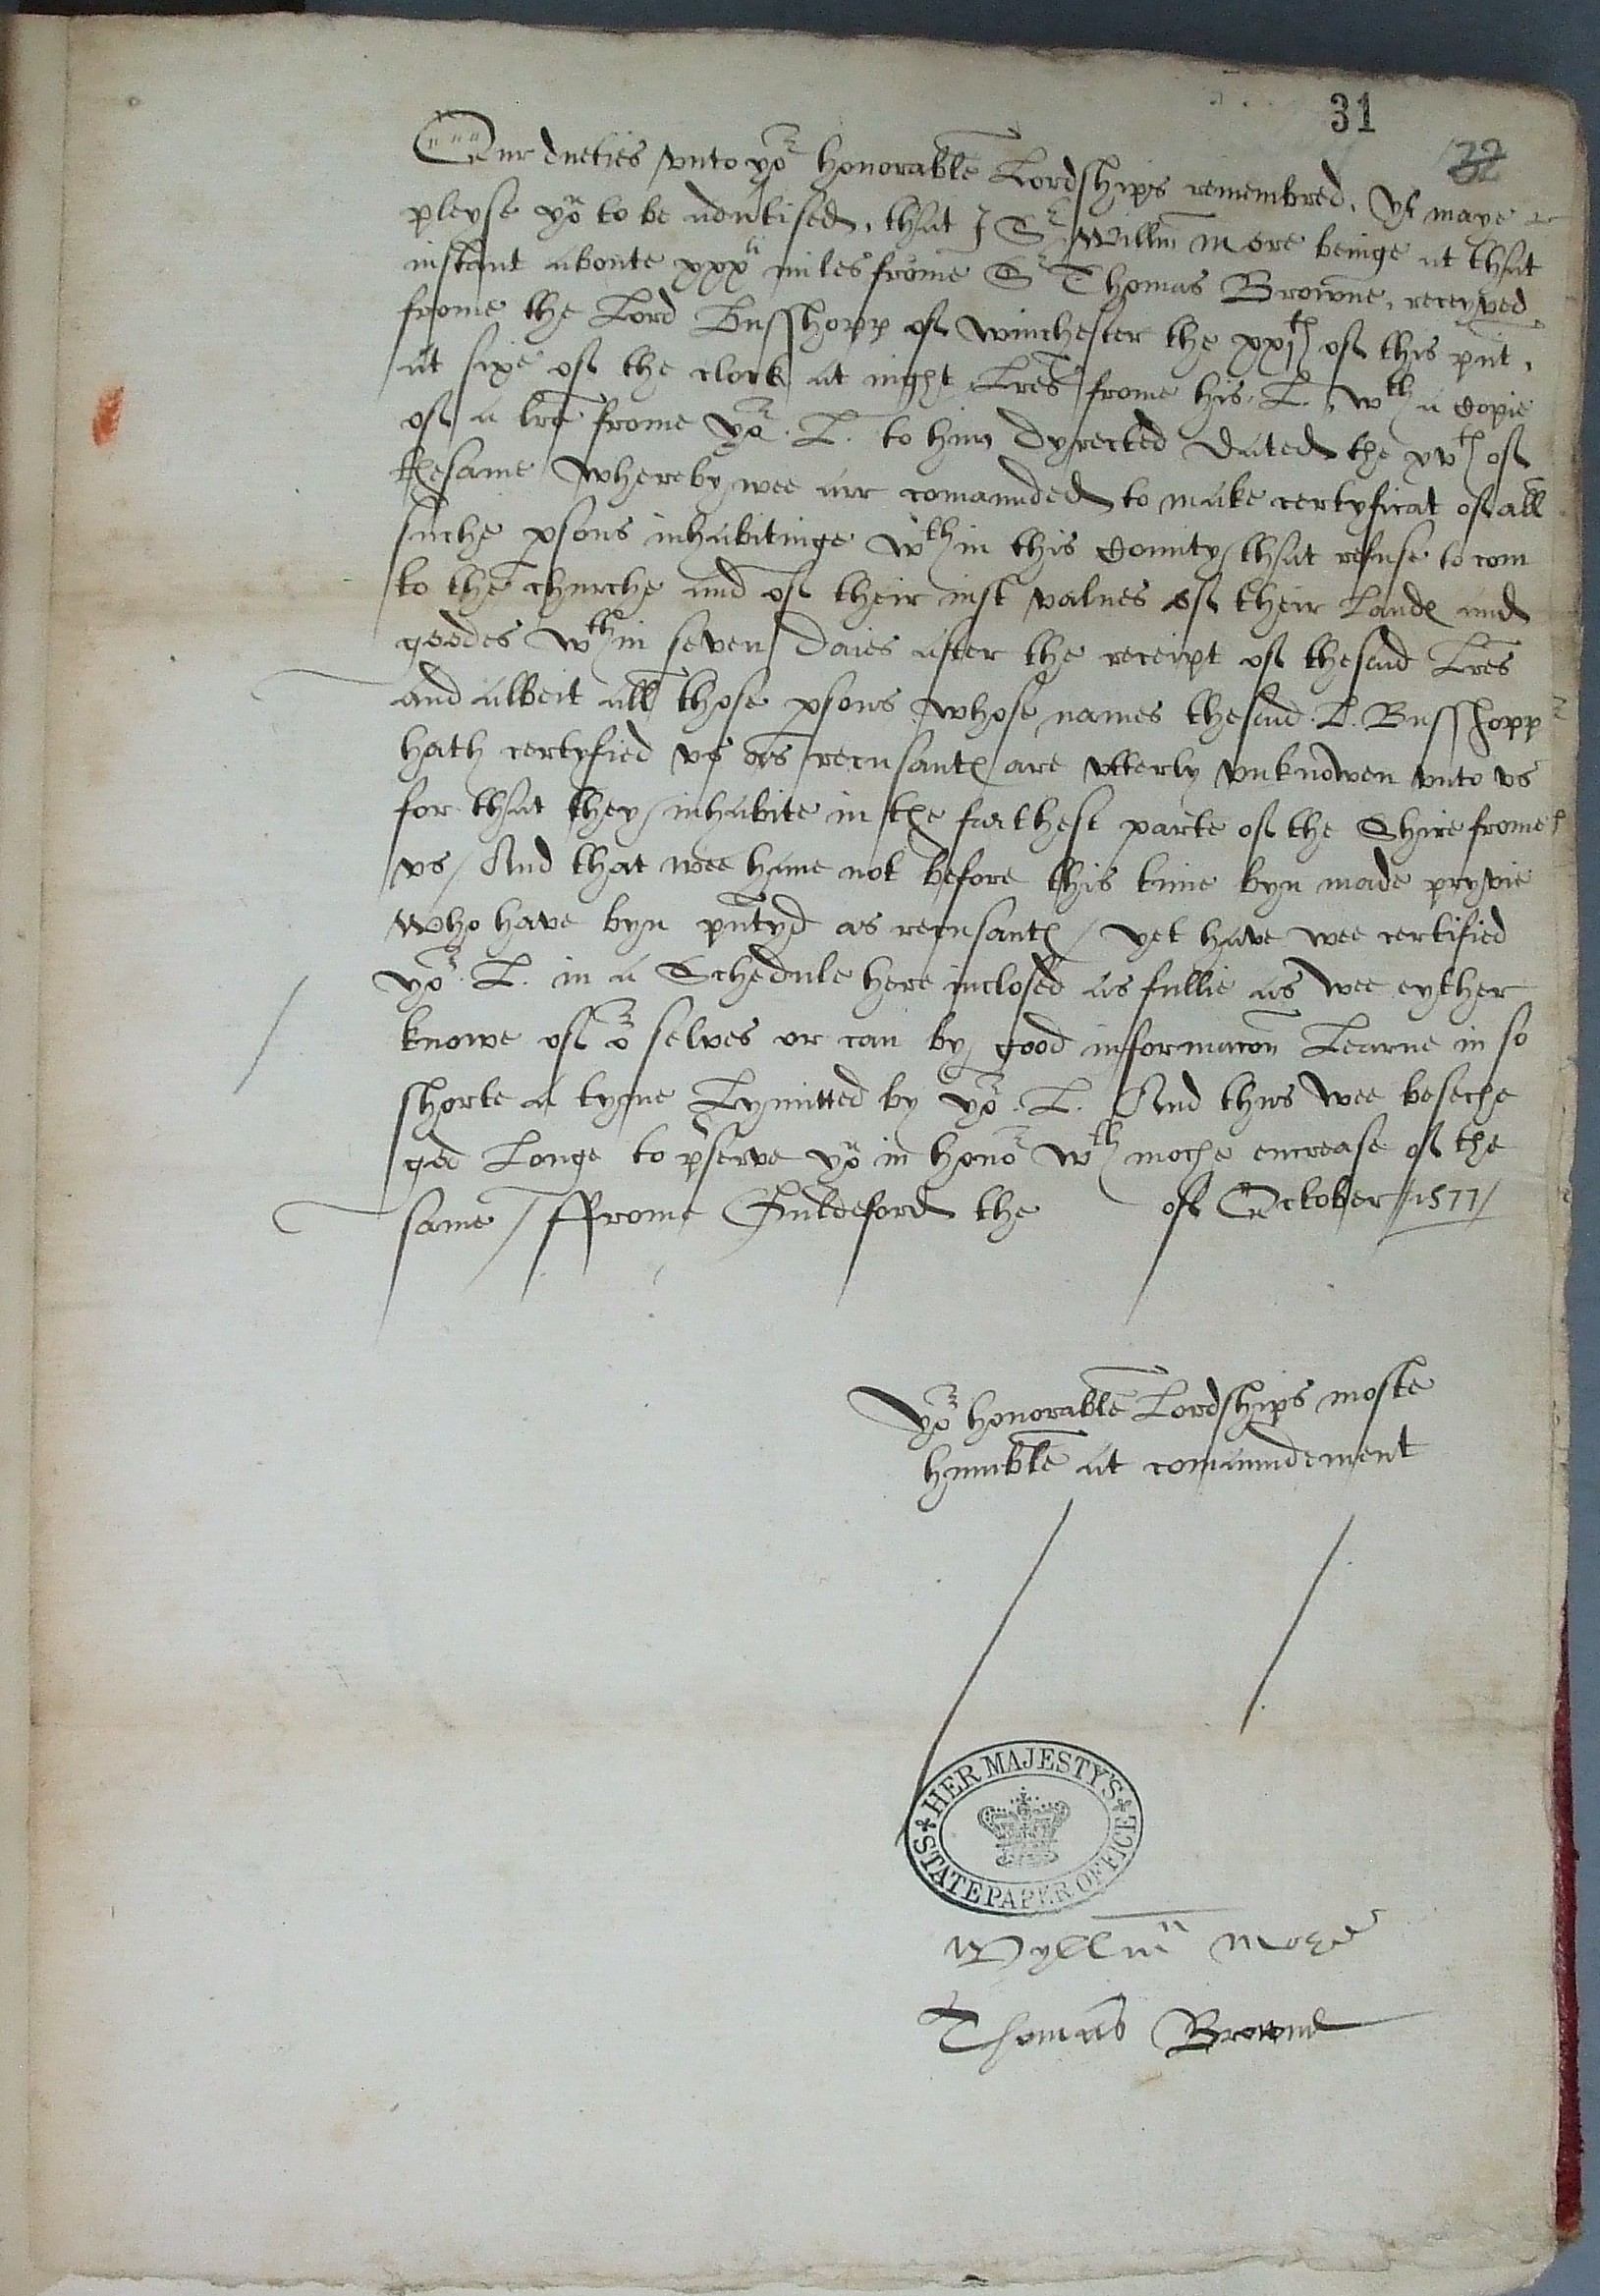 31
32
Our dueties vnto yor honorable Lordships remembred, Yt maye
pleyse yow to be adu'tised, that I Sr Willm More beinge at that
instant aboute xxxti miles frome Sr Thomas Browne, receyved
frome the Lord Busshopp of Winchester the xxjth of this pnt,
at sixe of the clock at night Lres frome his L. wth a Copie
of a lre frome yor L. to him dyrected dated the xvth of
thesame whereby wee arr comaunded to make certyficat of all
suche psons inhabitinge wthin this County that refuse to com
to the churche and of their iust values of their Landes and
goodes wthin seven daies after the receipt of thesaid Lres
and albeit all those psons whose names thesaid L. Busshopp
hath certyfied vs as recusantes are vtterly vnknowen vnto vs
for that they inhabite in the farthest parte of the Shire frome
vs / And that wee haue not before this time byn made pryvie
who have byn pntyd as recusantes / yet have wee certified
yor L. in a Schedule here inclosed as fullie as wee eyther
knowe of or selves or can by good informacon Learne in so
shorte a tyme Lymitted by yor L. And thus wee beseche
god Longe to pserve yow in honor wth moche encrease of the
same / ffrome Guldeford the of October / 1577 /
Yor honorable Lordships moste
humble at comaundement
HER MAJESTY'S STATE PAPER OFFICE
Wyllm More
Thomas Browne